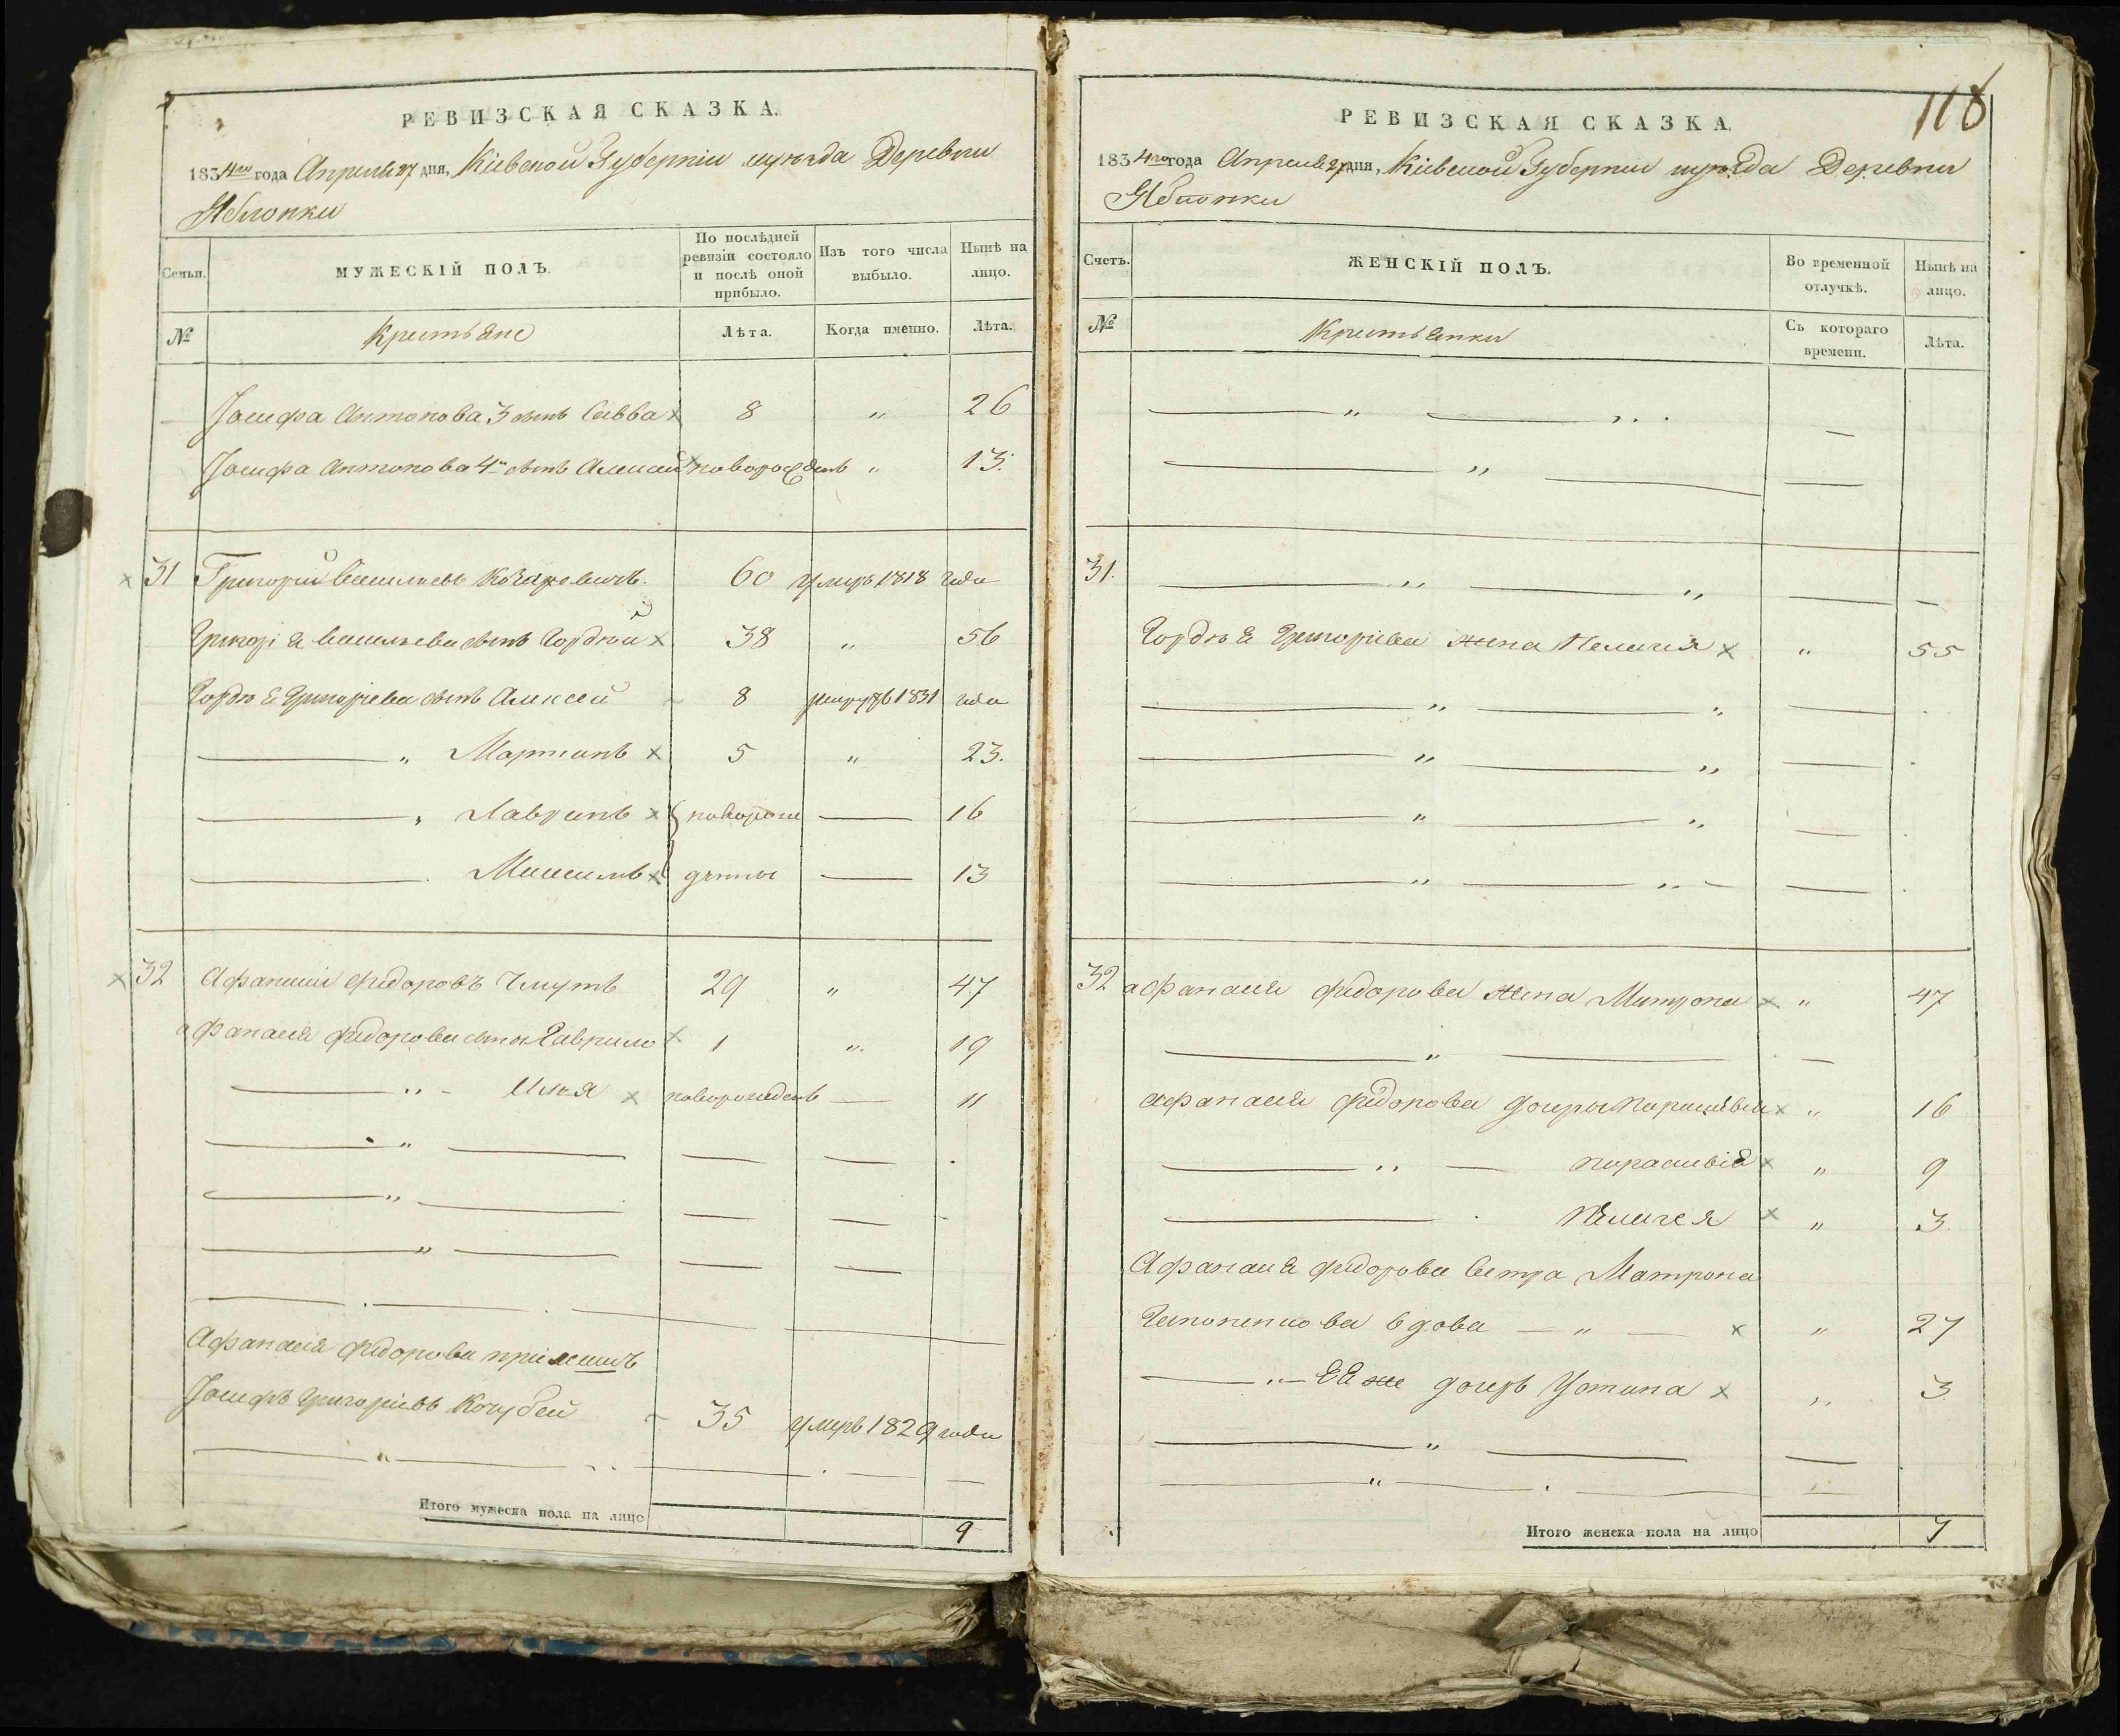 РЕВИЗСКАЯ СКАЗКА.
1834го года Апреля 27 дня, Кіевской Губерніи уезда Деревни
Яблонки
Семьи.
МУЖЕСКІЙ ПОЛЪ.
По послѣдней ревизіи состояло и послѣ оной прибыло.
Изъ того числа выбыло.
Нынѣ на лицо.
№
Крестьяне
Лѣта.
Когда именно.
Лѣта.
Іосифа Антонова 3 сынъ Савва х 8 " 26
Іосифа Антонова 4й сынъ Алексей х новорожденъ " 13.
х 31 Григорий Васильевъ 60 умеръ 1818 года
Григорія Васильева сынъ Гордѣй х 38 " 56
Гордѣя Григоріева сынъ Алексей 8 1831 года
" Мартинъ х 5 " 23.
" Лавринъ х новорож 16
Михаилъ х денны 13
х 32 Афанасий Федоровъ Чмуть 29 " 47
Афанасія Федорова сынъ Гаврило х 1 " 19
" Илья х новорожденъ 11
"
"
"
Афанасія Федорова приемышъ
Іосифъ Григоріевъ Кочубей 35 умеръ 1829 года
"
Итого мужеска пола на лицо 9
118
РЕВИЗСКАЯ СКАЗКА.
1834го года Апреля 27 дня, Кіевской Губерніи уезда Деревни
Яблонки
Счетъ.
ЖЕНСКІЙ ПОЛЪ.
Во временной отлучкѣ.
Нынѣ на лицо.
№
Крестьянки
Съ котораго времени.
Лѣта.
" "
"
31. " "
Гордѣя Григоріева жена Пелагея х " 55
" "
" "
" "
" "
32 Афанасія Федорова жена Матрона х " 47
"
Афанасія Федорова дочери Парасковья х " 16
" Парасковія х " 9
Пелагея х " 3.
Афанасія Федорова Сестра Матрона
вдова " х " 27
" Ея же дочерь Устина х " 3
"
"
Итого женска пола на лицо 7